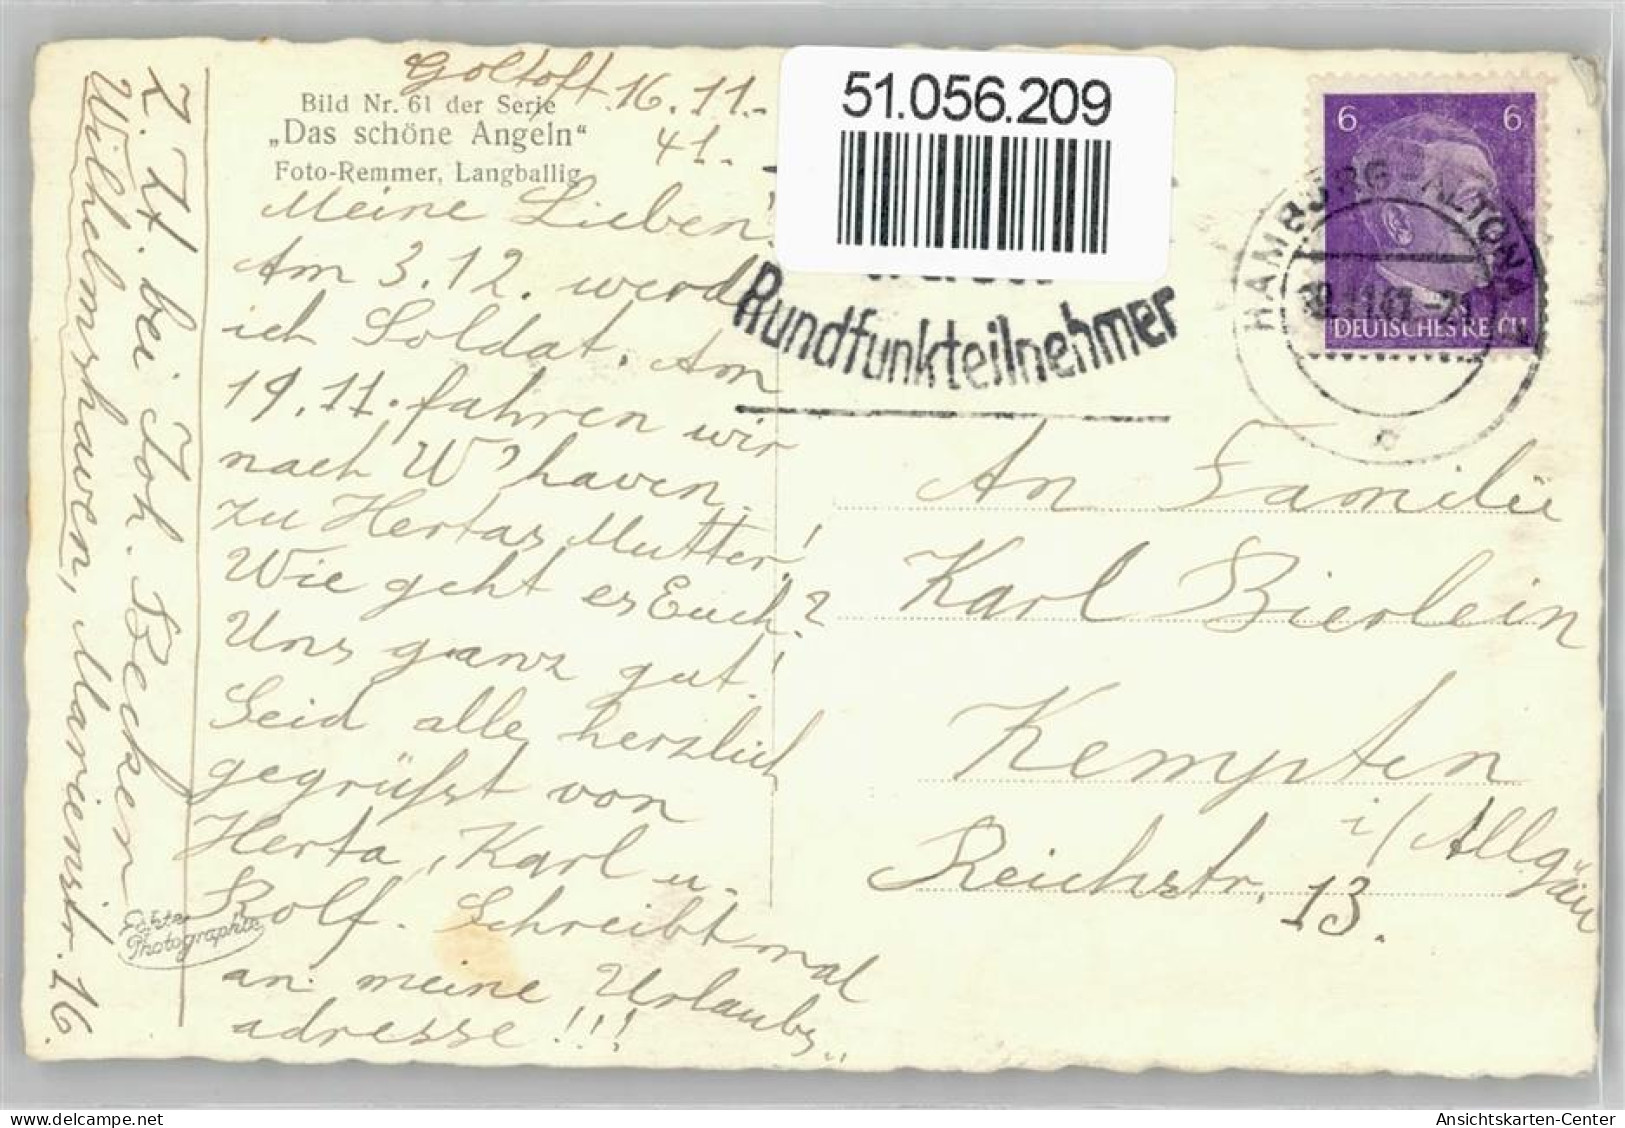 Goltoft 16.11.
41.
Bild Nr. 61 der Serie
„Das schöne Angeln“
Foto-Remmer, Langballig
Meine Lieben!
Am 3.12. werd
ich Soldat. Am
19.11. fahren wir
nach W'haven
zu Hertas Mutter!
Wie geht es Euch?
Uns ganz gut!
Seid alle herzlich
gegrüßt von
Herta, Karl u.
Rolf. Schreibt mal
an meine Urlaubs„
adresse!!!
Z. Zt. bei Joh. Becker
Wilhelmshaven, Marienstr. 16.
Echte
Photographie
51.056.209
Rundfunkteilnehmer
6 6
DEUTSCHES REICH
HAMBURG-ALTONA
An Familie
Karl Bierlein
Kempten
i/Allgäu
Reichstr. 13.
Ansichtskarten-Center